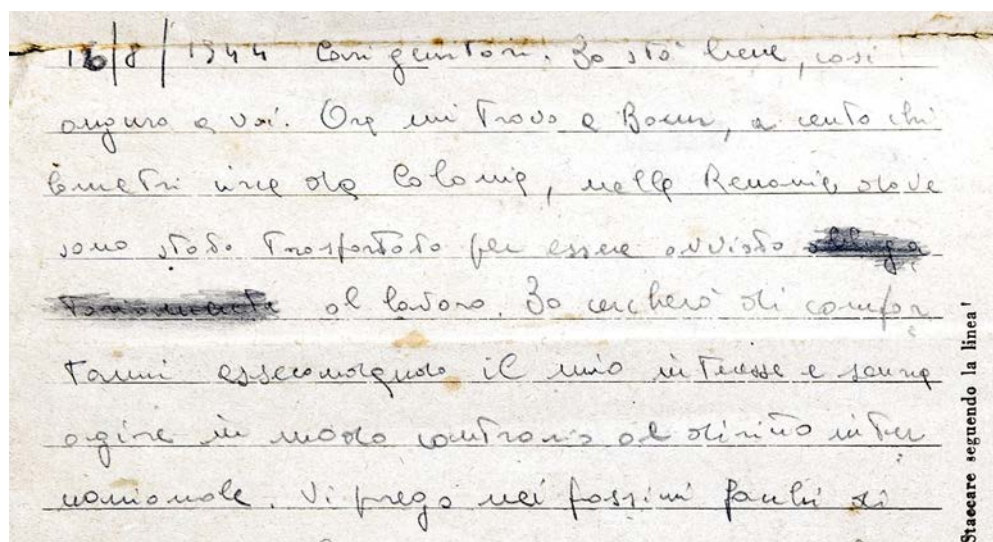 16/8/1944 Cari genitori. Io stò bene, così
auguro a voi. Ora mi trovo a Bonn, a cento chi
lometri circa da Colonia, nella Renania dove
sono stato trasportato per essere avviato obbliga
toriamente al lavoro. Io cercherò di compor
tarmi assecondando il mio interesse e senza
agire in modo contrario al diritto inter
nazionale. Vi prego nei possimi pacchi di
Staccare seguendo la linea!